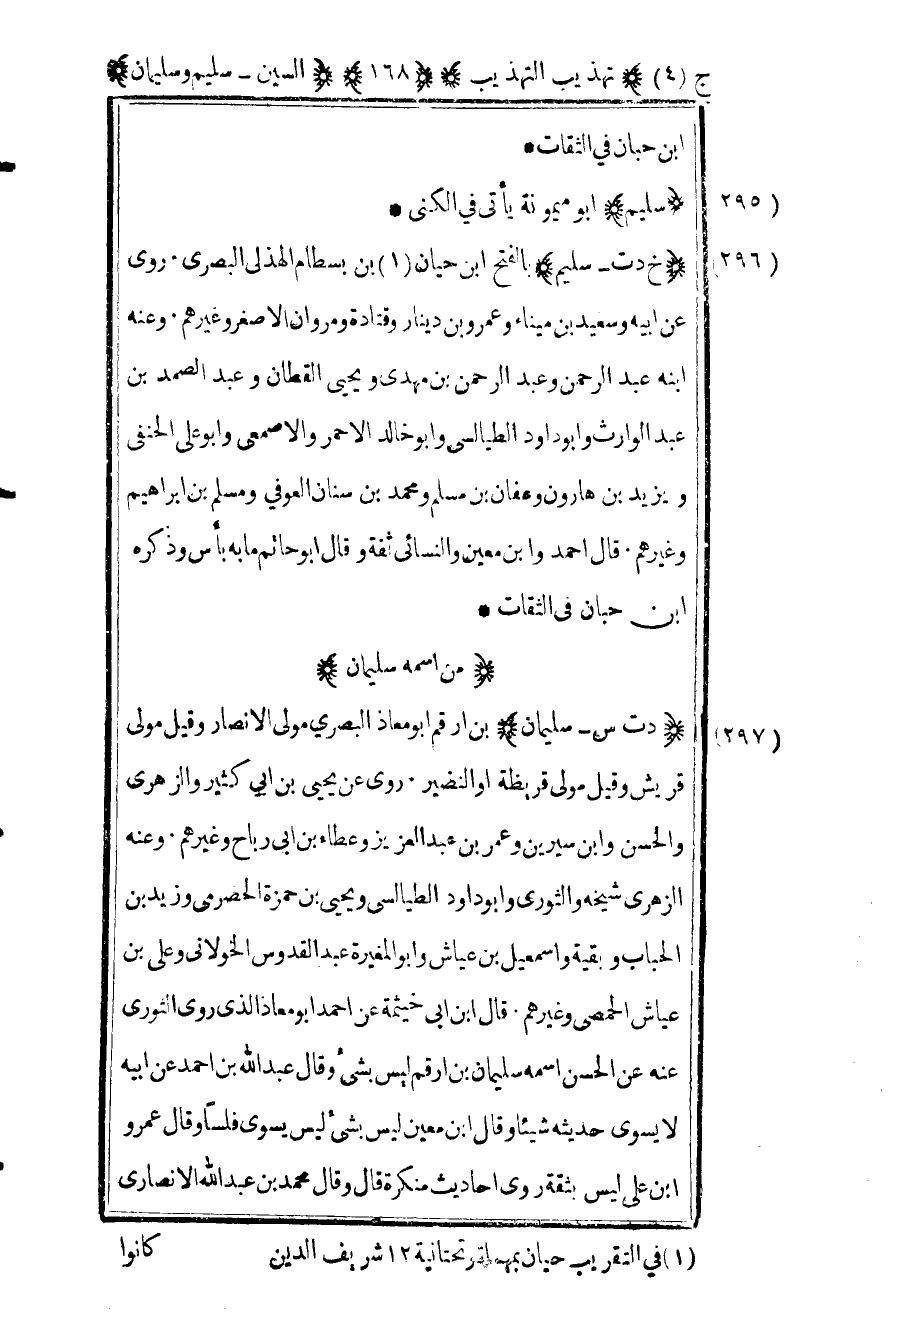 ج (٤) ﴿ تهذيب التهذيب ﴾ ﴿ ١٦٨ ﴾ ﴿ السين ـ سليم وسليمان ﴾
ابن حبان في الثقات *
(٢٩٥) ﴿ سليم ﴾ ابو ميمونة يأتى في الكنى *
(٢٩٦) ﴿ خ د ت ـ سليم ﴾ بالفتح ابن حيان (١) بن بسطام الهذلى البصرى · روى
عن ابيه وسعيد بن ميناء وعمرو بن دينار وقتادة ومروان الاصغر وغيرهم · وعنه
ابنه عبد الرحمن وعبد الرحمن بن مهدى و يحيى القطان و عبد الصمد بن
عبد الوارث وابو داود الطيالسى وابو خالد الاحمر والاصمعى وابو على الحنفى
و يزيد بن هارون وعفان بن مسلم ومحمد بن سنان العوفي ومسلم بن ابراهيم
وغيرهم · قال احمد وابن معين والنسائى ثقة و قال ابو حاتم مابه بأس وذكره
ابن حبان فى الثقات *
﴿ من اسمه سليمان ﴾
(٢٩٧) ﴿ د ت س ـ سليمان ﴾ بن ارقم ابو معاذ البصري مولى الانصار وقيل مولى
قريش وقيل مولى قريظة او النضير · روى عن يحيى بن ابي كثير والزهرى
والحسن وابن سيرين وعمر بن عبد العزيز وعطاء بن ابى رباح وغيرهم · وعنه
الزهرى شيخه والثورى وابو داود الطيالسى و يحيى بن حمزة الحضرمى وزيد بن
الحباب و بقية واسمعيل بن عياش وابو المغيرة عبد القدوس الخولانى وعلى بن
عياش الحمصى وغيرهم · قال ابن ابى خيثمة عن احمد ابو معاذ الذى روى الثورى
عنه عن الحسن اسمه سليمان بن ارقم ليس بشئ وقال عبد الله بن احمد عن ابيه
لا يسوى حديثه شيئا وقال ابن معين ليس بشئ ليس يسوى فلساً وقال عمرو
ابن على ليس بثقة روى احاديث منكرة قال وقال محمد بن عبد الله الانصارى
(١) في التقريب حيان بمهملة وتحتانية ١٢ شريف الدين
كانوا